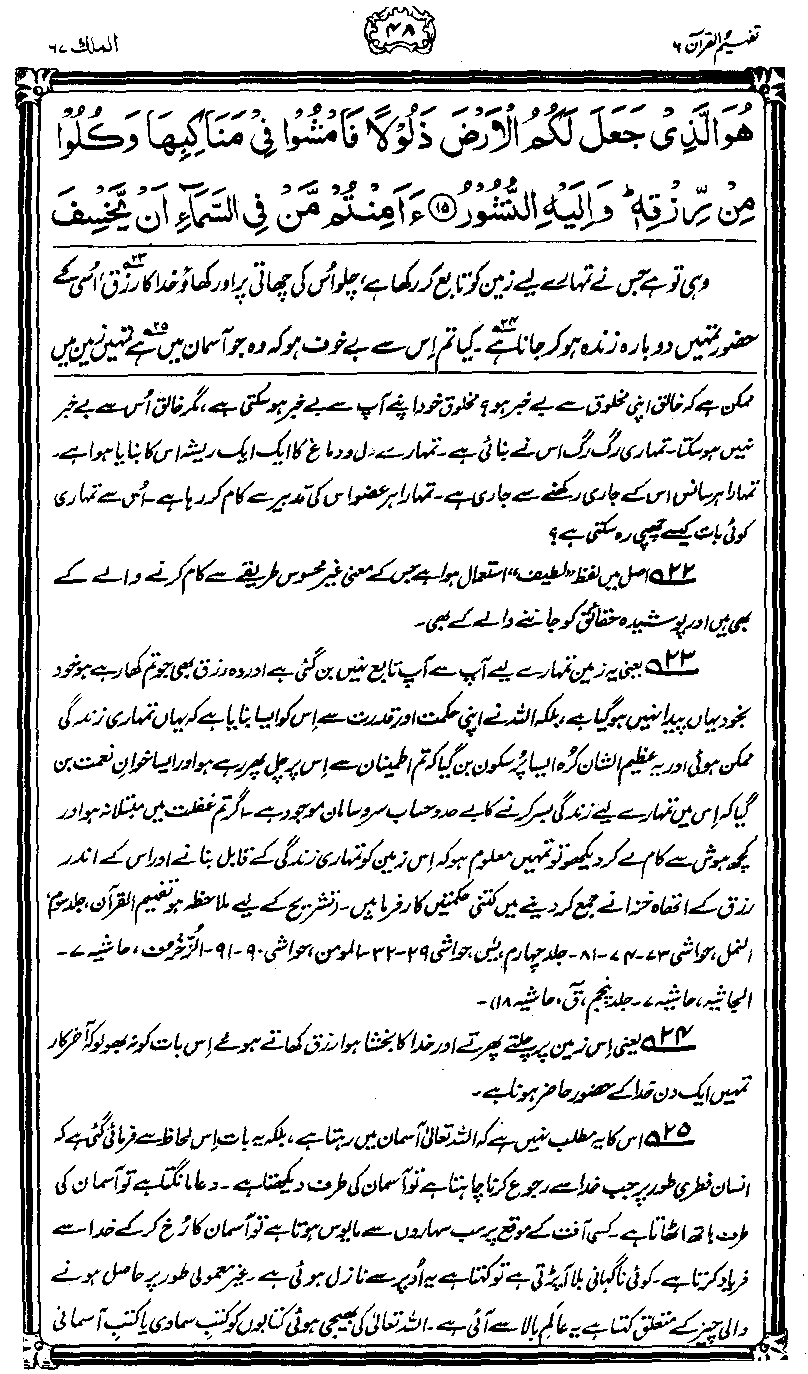 تفہیم القرآن ۶
۴۸
الملک ۶۷
هُوَ الَّذِیْ جَعَلَ لَكُمُ الْاَرْضَ ذَلُوْلًا فَامْشُوْا فِیْ مَنَاكِبِهَا وَكُلُوْا
مِنْ رِّزْقِهٖ ؕ وَاِلَیْهِ النُّشُوْرُ ۝۱۵ ءَاَمِنْتُمْ مَّنْ فِی السَّمَآءِ اَنْ یَّخْسِفَ
وہی تو ہے جس نے تمہارے لیے زمین کو تابع کر رکھا ہے، چلو اُس کی چھاتی پر اور کھاؤ خدا کا رزق،۲۳ اُسی کے
حضور تمہیں دوبارہ زندہ ہو کر جانا ہے۔۲۴ کیا تم اِس سے بے خوف ہو کہ وہ جو آسمان میں ہے۲۵ تمہیں زمین میں
ممکن ہے کہ خالق اپنی مخلوق سے بے خبر ہو؟ مخلوق خود اپنے آپ سے بے خبر ہو سکتی ہے، مگر خالق اُس سے بے خبر
نہیں ہو سکتا۔ تمہاری رگ رگ اس نے بنائی ہے۔ تمہارے دل و دماغ کا ایک ایک ریشہ اس کا بنایا ہوا ہے۔
تمہارا ہر سانس اس کے جاری رکھنے سے جاری ہے۔ تمہارا ہر عضو اس کی تدبیر سے کام کر رہا ہے۔ اُس سے تمہاری
کوئی بات کیسے چھپی رہ سکتی ہے؟
۲۲ اصل میں لفظ ”لطیف“ استعمال ہوا ہے جس کے معنی غیر محسوس طریقے سے کام کرنے والے کے
بھی ہیں اور پوشیدہ حقائق کو جاننے والے کے بھی۔
۲۳ یعنی یہ زمین تمہارے لیے آپ سے آپ تابع نہیں بن گئی ہے اور وہ رزق بھی جو تم کھا رہے ہو خود
بخود یہاں پیدا نہیں ہو گیا ہے، بلکہ اللہ نے اپنی حکمت اور قدرت سے اِس کو ایسا بنایا ہے کہ یہاں تمہاری زندگی
ممکن ہوئی اور یہ عظیم الشان کُرہ ایسا پُر سکون بن گیا کہ تم اطمینان سے اِس پر چل پھر رہے ہو اور ایسا خوانِ نعمت بن
گیا کہ اِس میں تمہارے لیے زندگی بسر کرنے کا بے حد و حساب سرو سامان موجود ہے۔ اگر تم غفلت میں مبتلا نہ ہو اور
کچھ ہوش سے کام لے کر دیکھو تو تمہیں معلوم ہو کہ اِس زمین کو تمہاری زندگی کے قابل بنانے اور اس کے اندر
رزق کے اتھاہ خزانے جمع کر دینے میں کتنی حکمتیں کارفرما ہیں۔ (تشریح کے لیے ملاحظہ ہو تفہیم القرآن، جلد سوم،
النمل، حواشی ۷۳-۷۴-۸۱۔ جلد چہارم، یٰس، حواشی ۲۹-۳۲۔ المومن، حواشی ۹۰-۹۱۔ الزُّخرُف، حاشیہ ۷۔
الجاثیہ، حاشیہ ۷۔ جلد پنجم، قٓ، حاشیہ ۱۸)۔
۲۴ یعنی اِس زمین پر چلتے پھرتے اور خدا کا بخشا ہوا رزق کھاتے ہوئے اِس بات کو نہ بھولو کہ آخر کار
تمہیں ایک دن خدا کے حضور حاضر ہونا ہے۔
۲۵ اس کا یہ مطلب نہیں ہے کہ اللہ تعالیٰ آسمان میں رہتا ہے، بلکہ یہ بات اِس لحاظ سے فرمائی گئی ہے کہ
انسان فطری طور پر جب خدا سے رجوع کرنا چاہتا ہے تو آسمان کی طرف دیکھتا ہے۔ دعا مانگتا ہے تو آسمان کی
طرف ہاتھ اٹھاتا ہے۔ کسی آفت کے موقع پر سب سہاروں سے مایوس ہوتا ہے تو آسمان کا رُخ کر کے خدا سے
فریاد کرتا ہے۔ کوئی ناگہانی بلا آپڑتی ہے تو کہتا ہے یہ اُوپر سے نازل ہوئی ہے۔ غیر معمولی طور پر حاصل ہونے
والی چیز کے متعلق کہتا ہے یہ عالمِ بالا سے آئی ہے۔ اللہ تعالیٰ کی بھیجی ہوئی کتابوں کو کتبِ سماوی یا کتب آسمانی